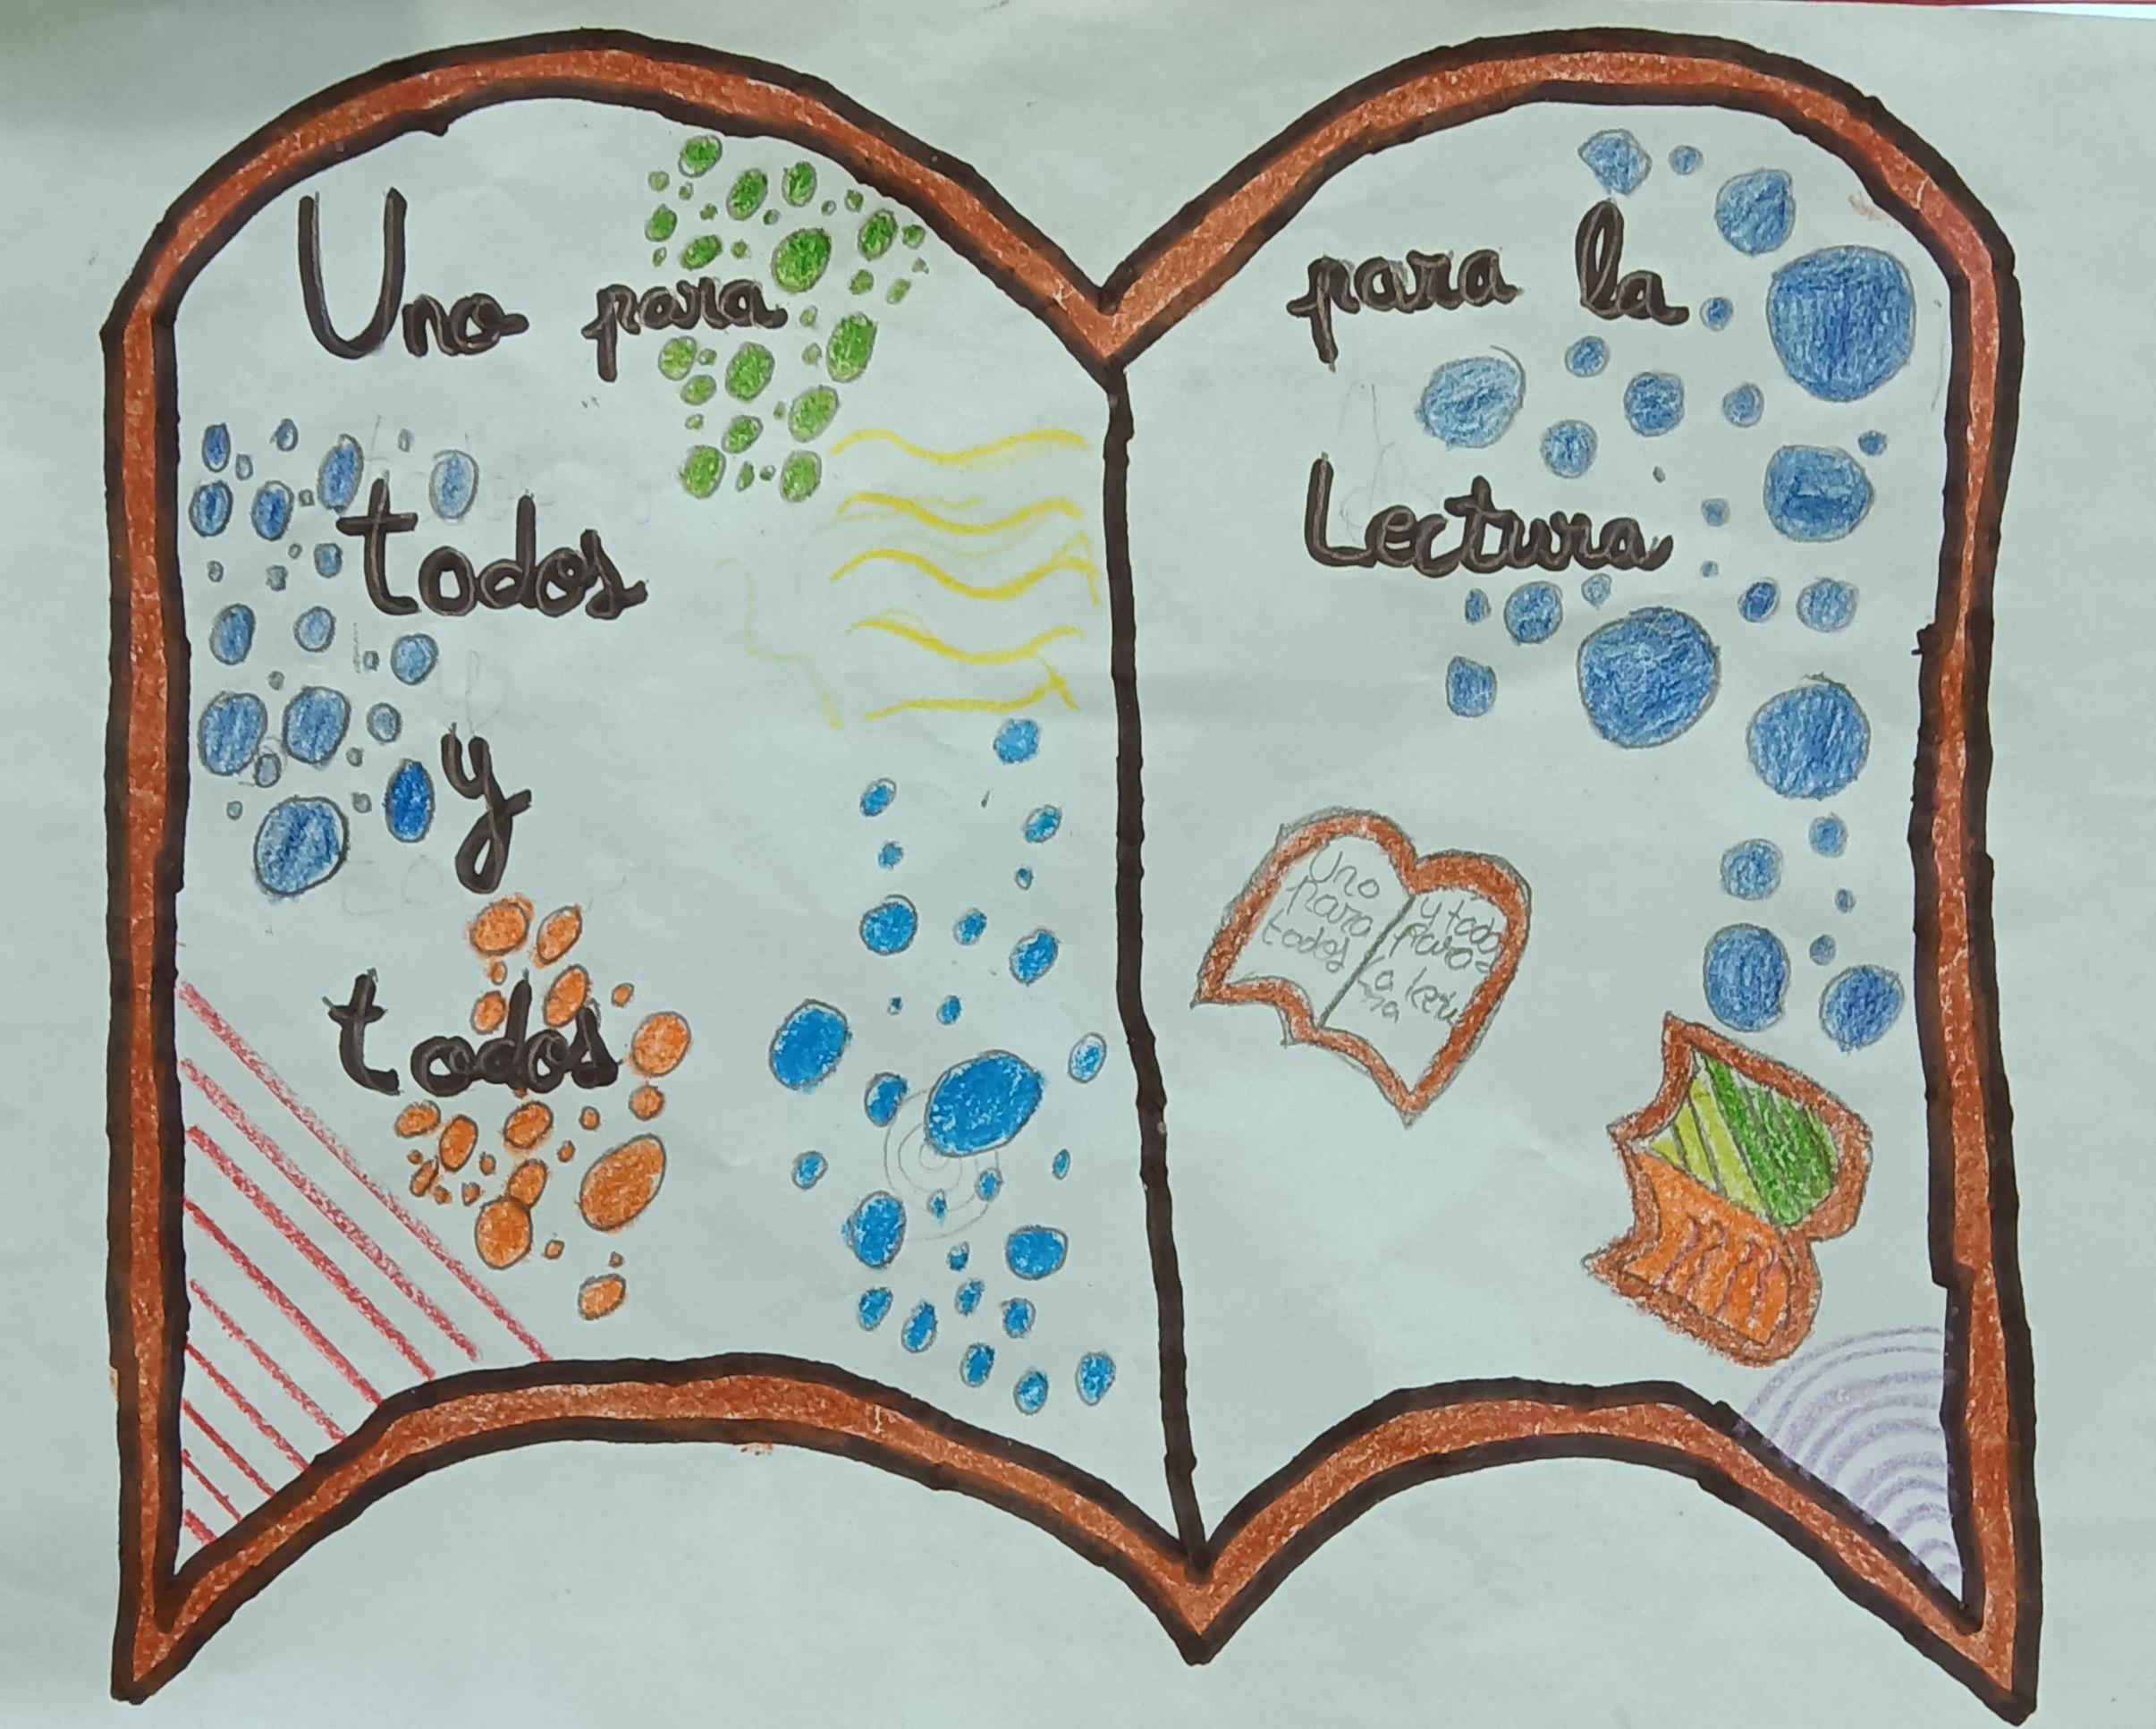 Uno para
todos
y
todos
para la
Lectura
Uno
para
todos
y todos
para